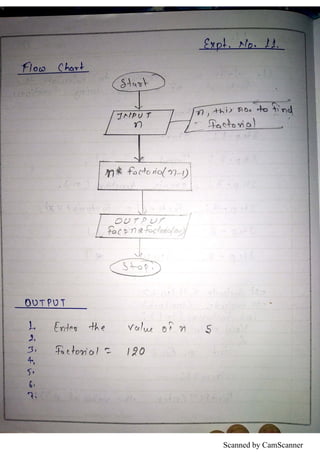 Expt. No. 11.
Flow Chart
Start
INPUT
n
n, this no. to find
factorial
n* factorial(n-1)
OUTPUT
Stop.
OUTPUT
1. Enter the value of n 5
2.
3. Factorial = 120
4.
5.
6.
7.
Scanned by CamScanner